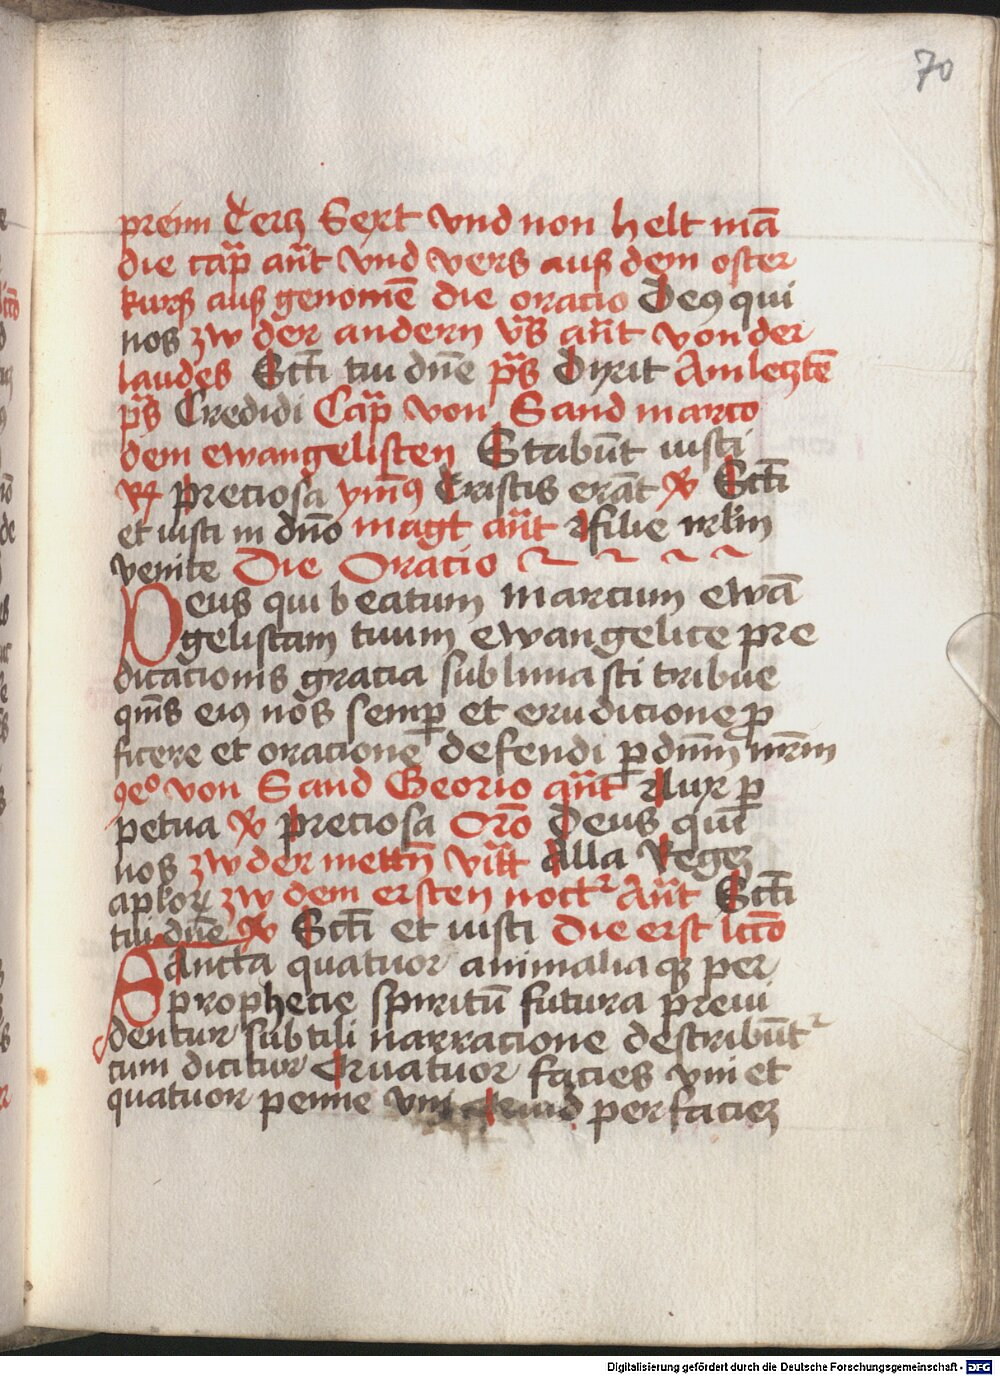 70
prenn Tercz Sext vnd non helt mā
die cap̄ an̄t vnd vers auß dem oster
kurß auß genomē die oracio Deꝯ qui
nos zw der andern vs̄ an̄t von der
laudes Sct̄i tui dn̄e ps̄ Dixit Am lecztē
ps̄ Credidi Cap̄ von Sand marco
dem ewangelisten Stabūt iusti
℟ Preciosa ym̄ꝯ Tristes erāt ℣ Sct̄i
et iusti in dn̄o magt an̄t filie irl̄m
venite Die Oracio
Deus qui beatum marcum ewā
gelistam tuum ewangelice pre
dicacionis gracia sublimasti tribue
qm̄s eiꝯ nos semꝑ et erudicione ꝓ
ficere et oracione defendi ꝑ dnm̄ nr̄m
von Sand Georio an̄t Lux ꝑ
petua ℣ Preciosa Oro̅ Deus qui
nos zw der mettn̄ vitt̄ Alla Regez
aplōꝝ zw dem ersten noct̄ An̄t Sct̄i
tui dn̄e ℣ Sct̄i et iusti Die erst lcc̄o
Sancta quatuor animalia qꝫ per
prophecie spiritū futura previ
dentur subtili narracione describūt
cum dicitur Qvatuor facies vni et
quatuor penne vni perfaciez
Digitalisierung gefördert durch die Deutsche Forschungsgemeinschaft - DFG